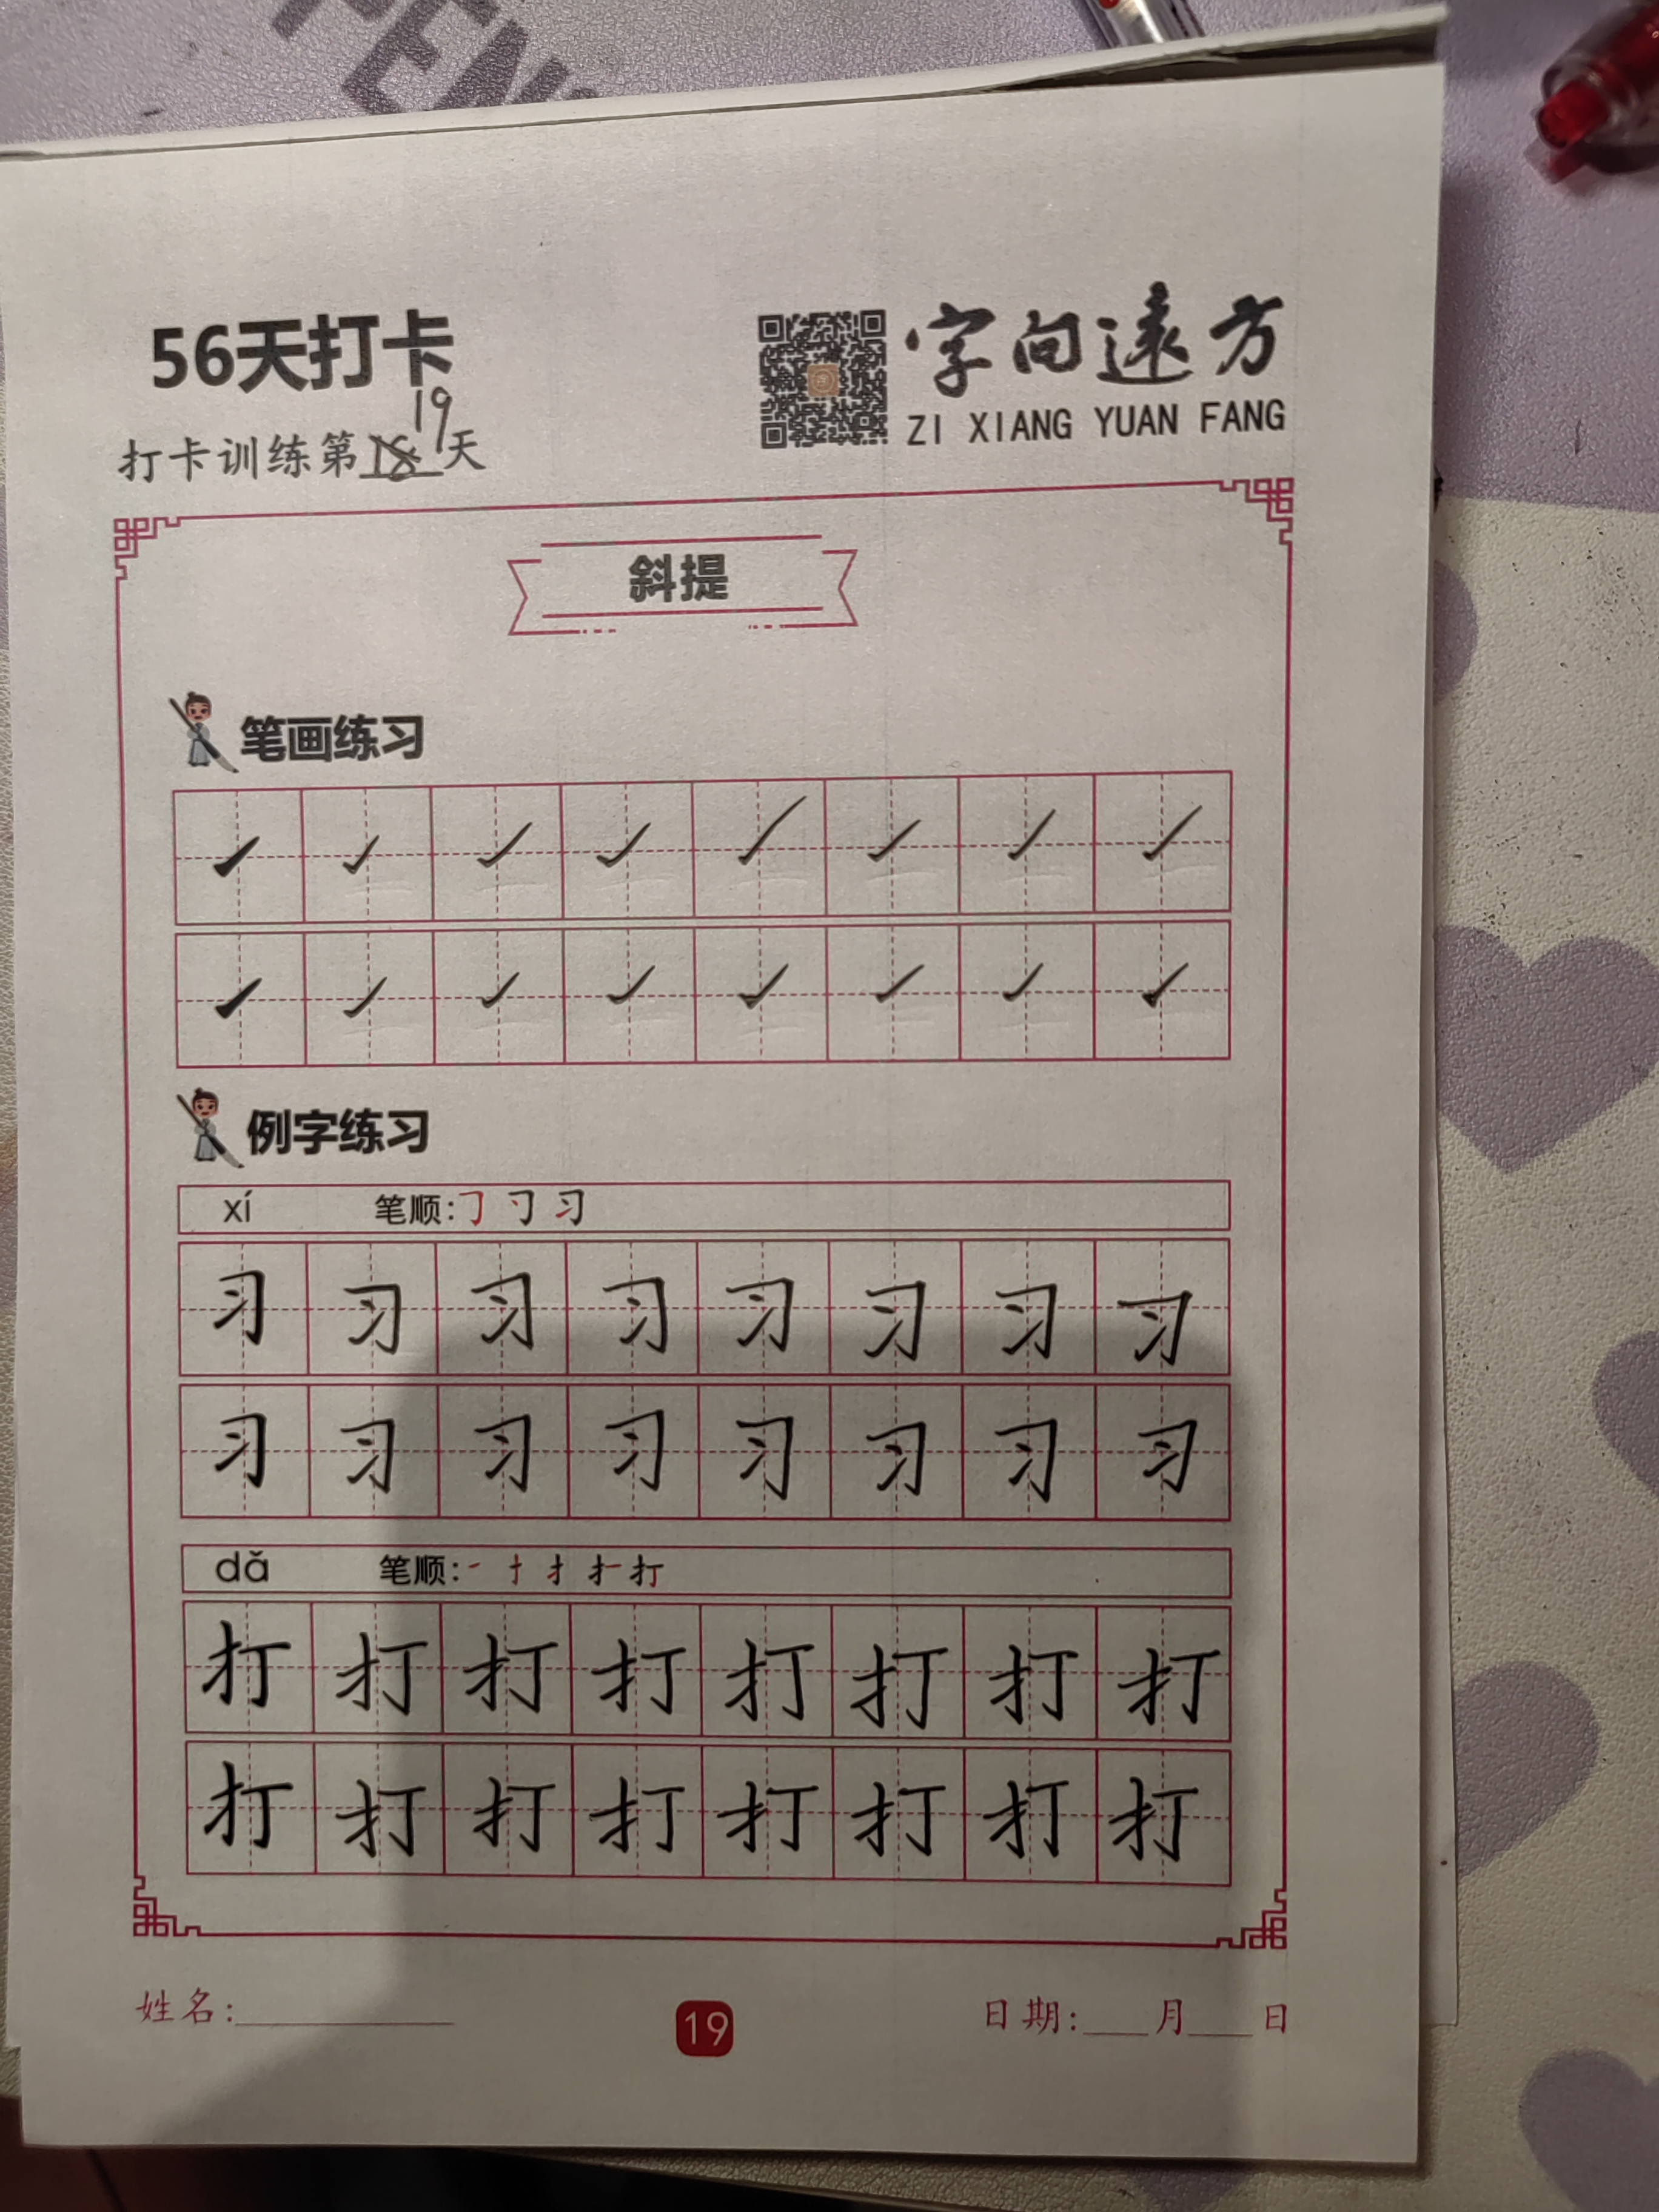 PEN
56天打卡
字向遠方
ZI XIANG YUAN FANG
19
打卡训练第18天
斜提
笔画练习
例字练习
xí 笔顺:㇆ 习
习 习 习 习 习 习 习 习
习 习 习 习 习 习 习 习
dǎ 笔顺:㇐ 扌 打
打 打 打 打 打 打 打 打
打 打 打 打 打 打 打 打
姓名:
19
日期: 月 日